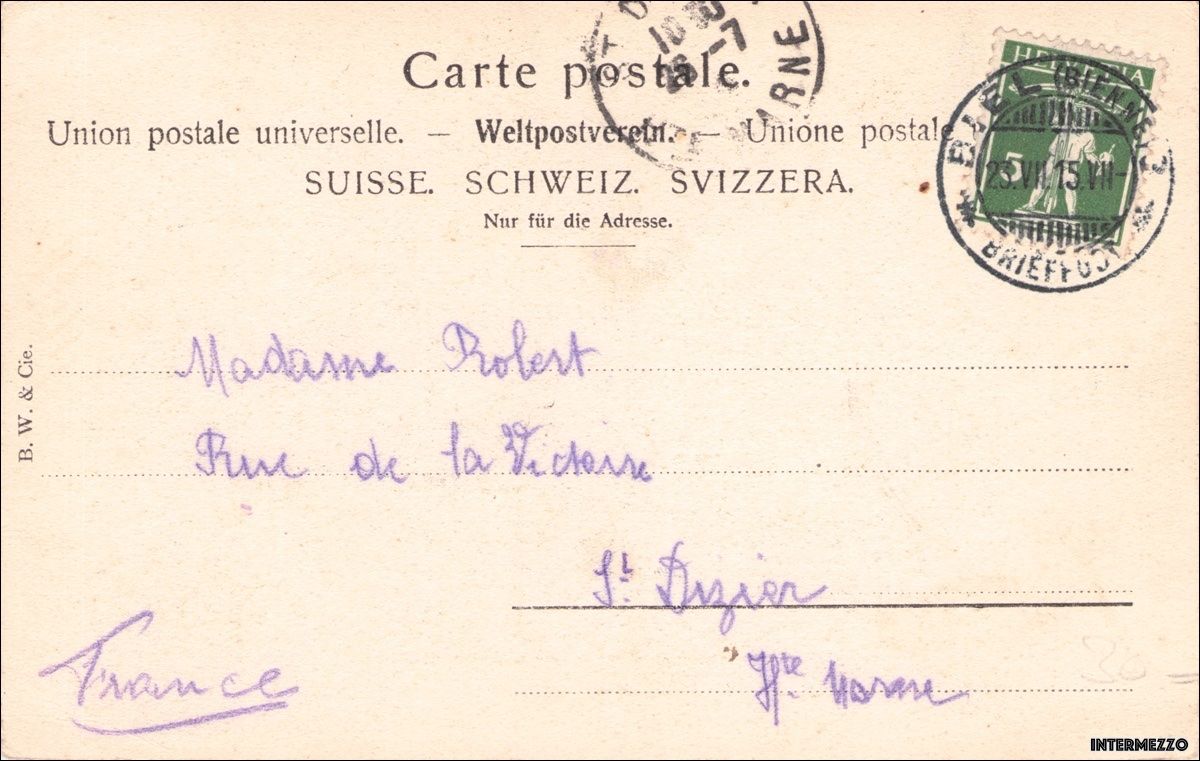 Carte postale.
Union postale universelle. — Weltpostverein. — Unione postale
SUISSE. SCHWEIZ. SVIZZERA.
Nur für die Adresse.
HELVETIA
5
BIEL (BIENNE)
23.VII.15.VII-
BRIEFPOST
10
MARNE
B. W. & Cie.
Madame Robert
Rue de la Victoire
St. Dizier
Hte Marne
France
30
INTERMEZZO